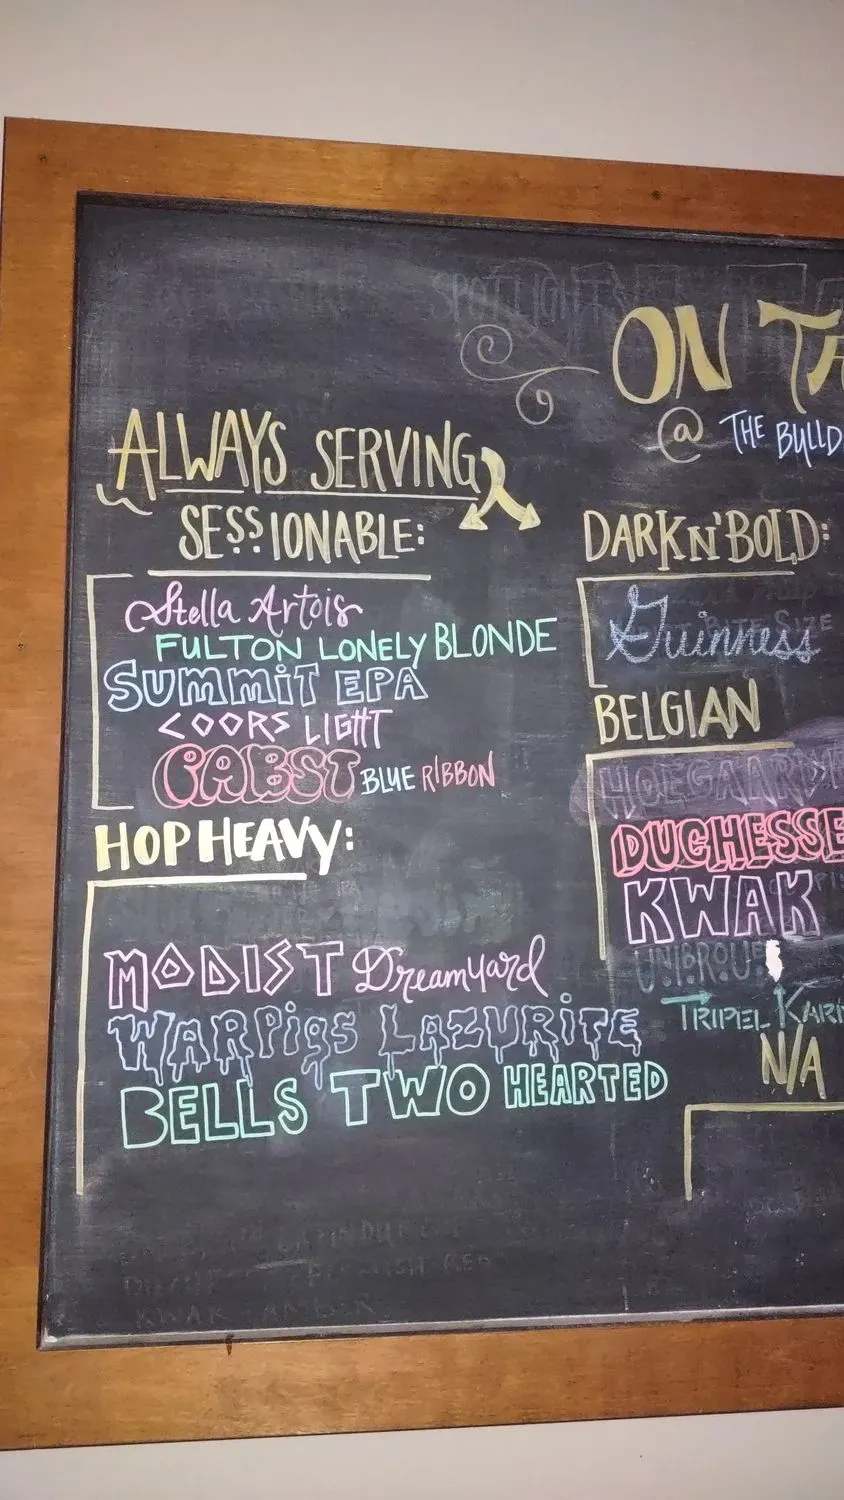 SPOTLIGHTS
ON TA
@ THE BULLD
ALWAYS SERVING
SESSIONABLE:
Stella Artois
FULTON LONELY BLONDE
SUMMIT EPA
COORS LIGHT
PABST BLUE RIBBON
HOP HEAVY:
MODIST Dreamyard
WARPigs LAZURITE
BELLS TWO HEARTED
DARK N' BOLD:
Guinness
BELGIAN
HOEGAARD
DUCHESSE
KWAK
UNIBROUE
TRIPEL KARM
N/A